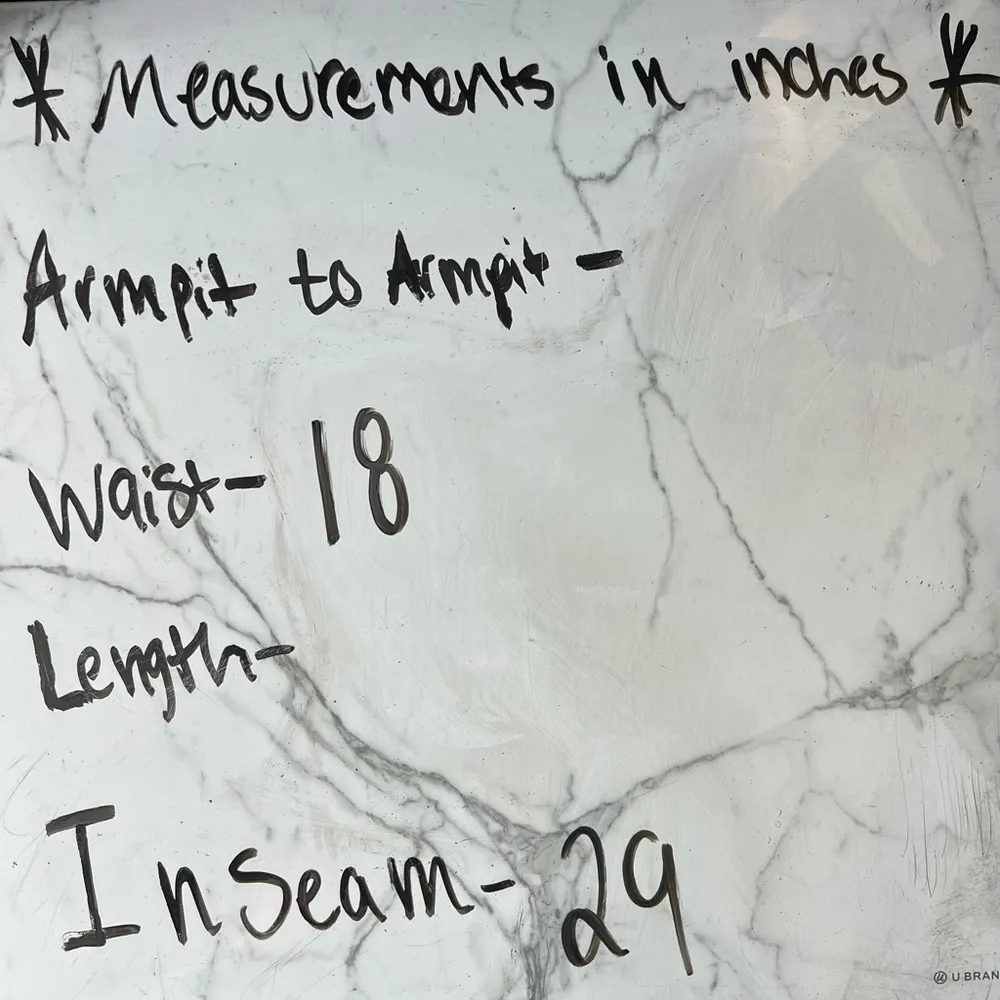 * Measurements in inches *
Armpit to Armpit -
Waist- 18
Length-
Inseam- 29
U BRAN